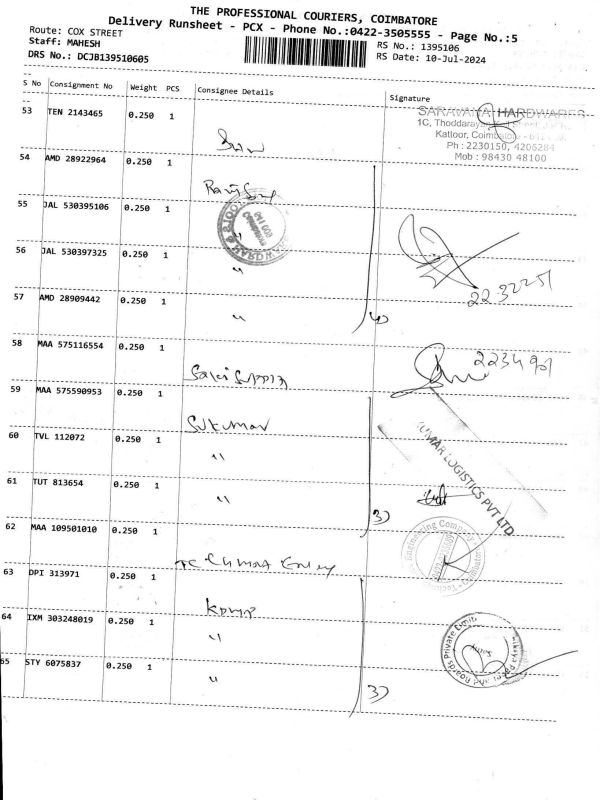 THE PROFESSIONAL COURIERS, COIMBATORE
Delivery Runsheet - PCX - Phone No.:0422-3505555 - Page No.:5
Route: COX STREET
Staff: MAHESH RS No.: 1395106
DRS No.: DCJB139510605 RS Date: 10-Jul-2024
S No Consignment No Weight PCS Consignee Details Signature
53 TEN 2143465 0.250 1
SARAVANA HARDWARES
1C, Thoddarayan
Katloor, Coimbatore
Ph : 2230150, 4206284
Mob : 98430 48100
54 AMD 28922964 0.250 1
55 JAL 530395106 0.250 1 "
56 JAL 530397325 0.250 1 "
22 32251
57 AMD 28909442 0.250 1 " 4)
58 MAA 575116554 0.250 1
59 MAA 575590953 0.250 1 Sukumar
60 TVL 112072 0.250 1 "
KUMAR LOGISTICS PVT LTD
61 TUT 813654 0.250 1 " 3)
62 MAA 109501010 0.250 1
Engineering Company
63 DPI 313971 0.250 1
64 IXM 303248019 0.250 1 "
Boards Private Limit
65 STY 6075837 0.250 1 " 3)